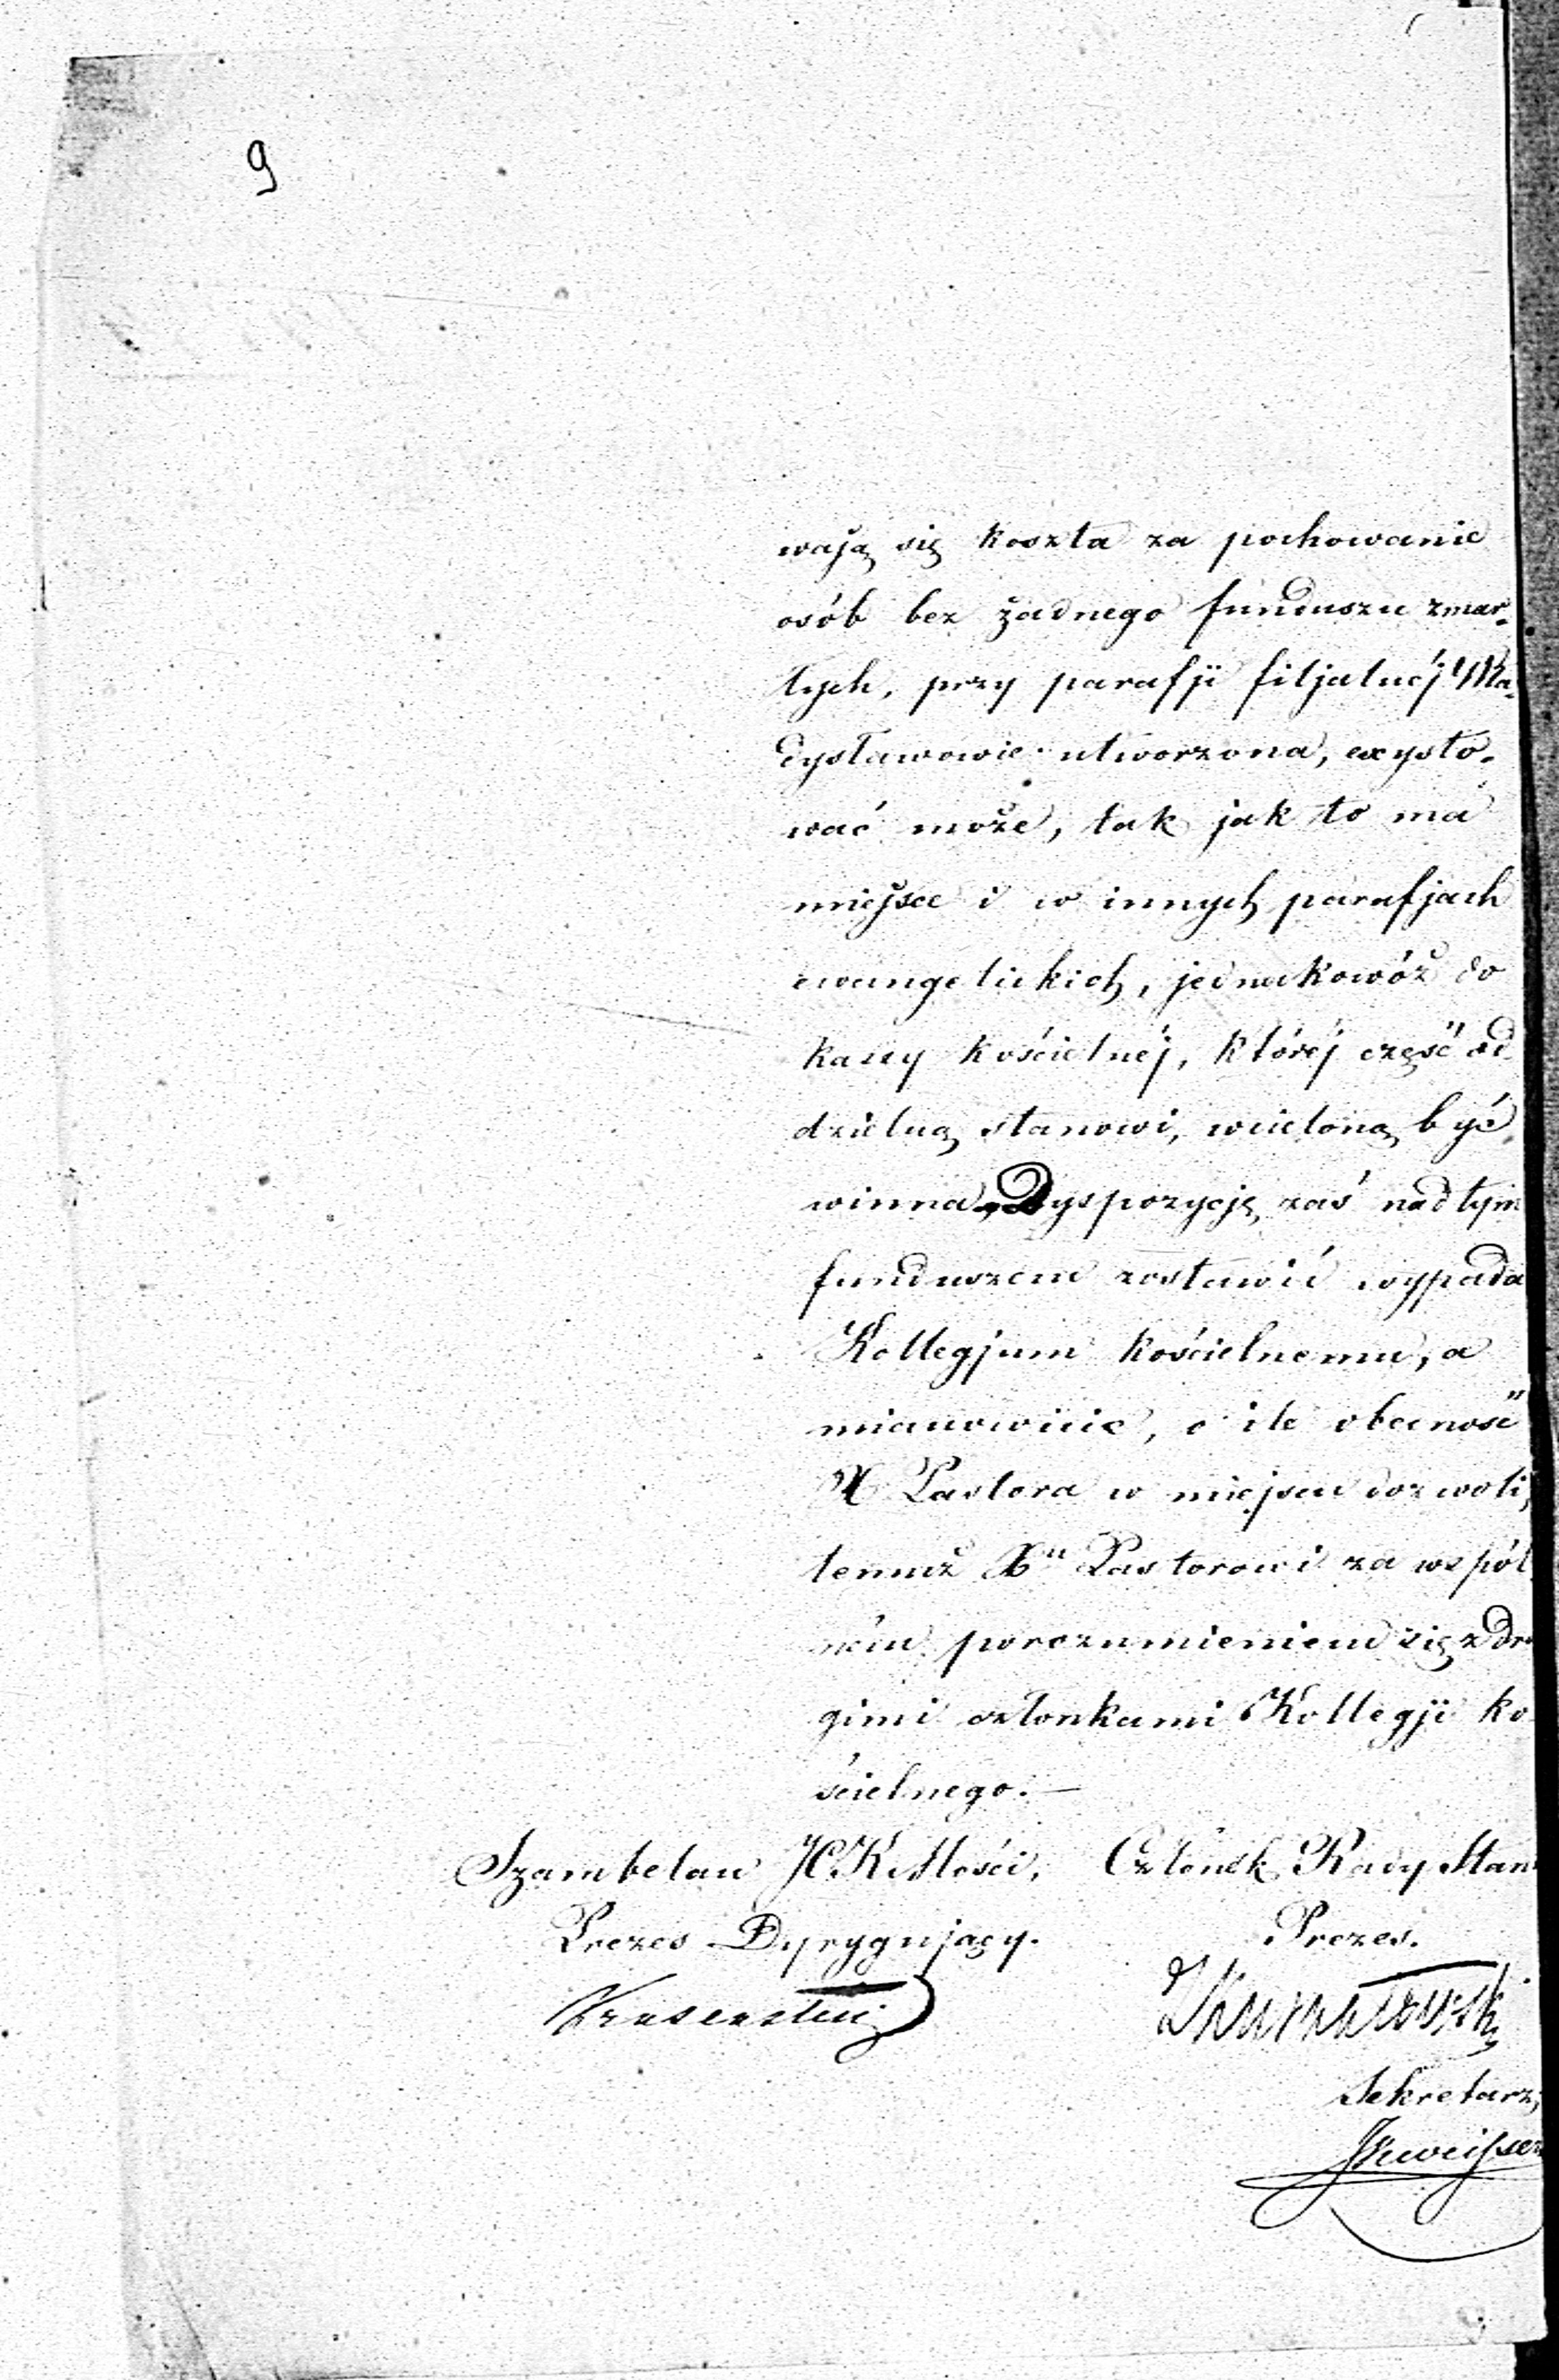 9
wają się koszta za pochowanie
osób bez żadnego funduszu zmar-
łych, przy parafji filjalnéj Wła-
dysławowie utworzona, exysto-
wać może, tak jak to ma
miejsce i w innych parafjach
ewangelickich, jednakowóż do
kassy kościelnéj, któréj część od
dzielną stanowi, wcieloną być
winna, Dyspozycję zaś nad tym
funduszem zostawić wypada
Kollegjum kościelnemu, a
mianowicie, o ile obecność
X Pastora w miejscu dozwoli,
temuż Xu Pastorowi za wspól
ném porozumieniem się z dru
gimi członkami Kollegji ko-
ścielnego.—
Szambelan J.C.K. Mości, Członek Rady Stanu
Prezes Dyrygujący. Prezes.
Sekretarz,